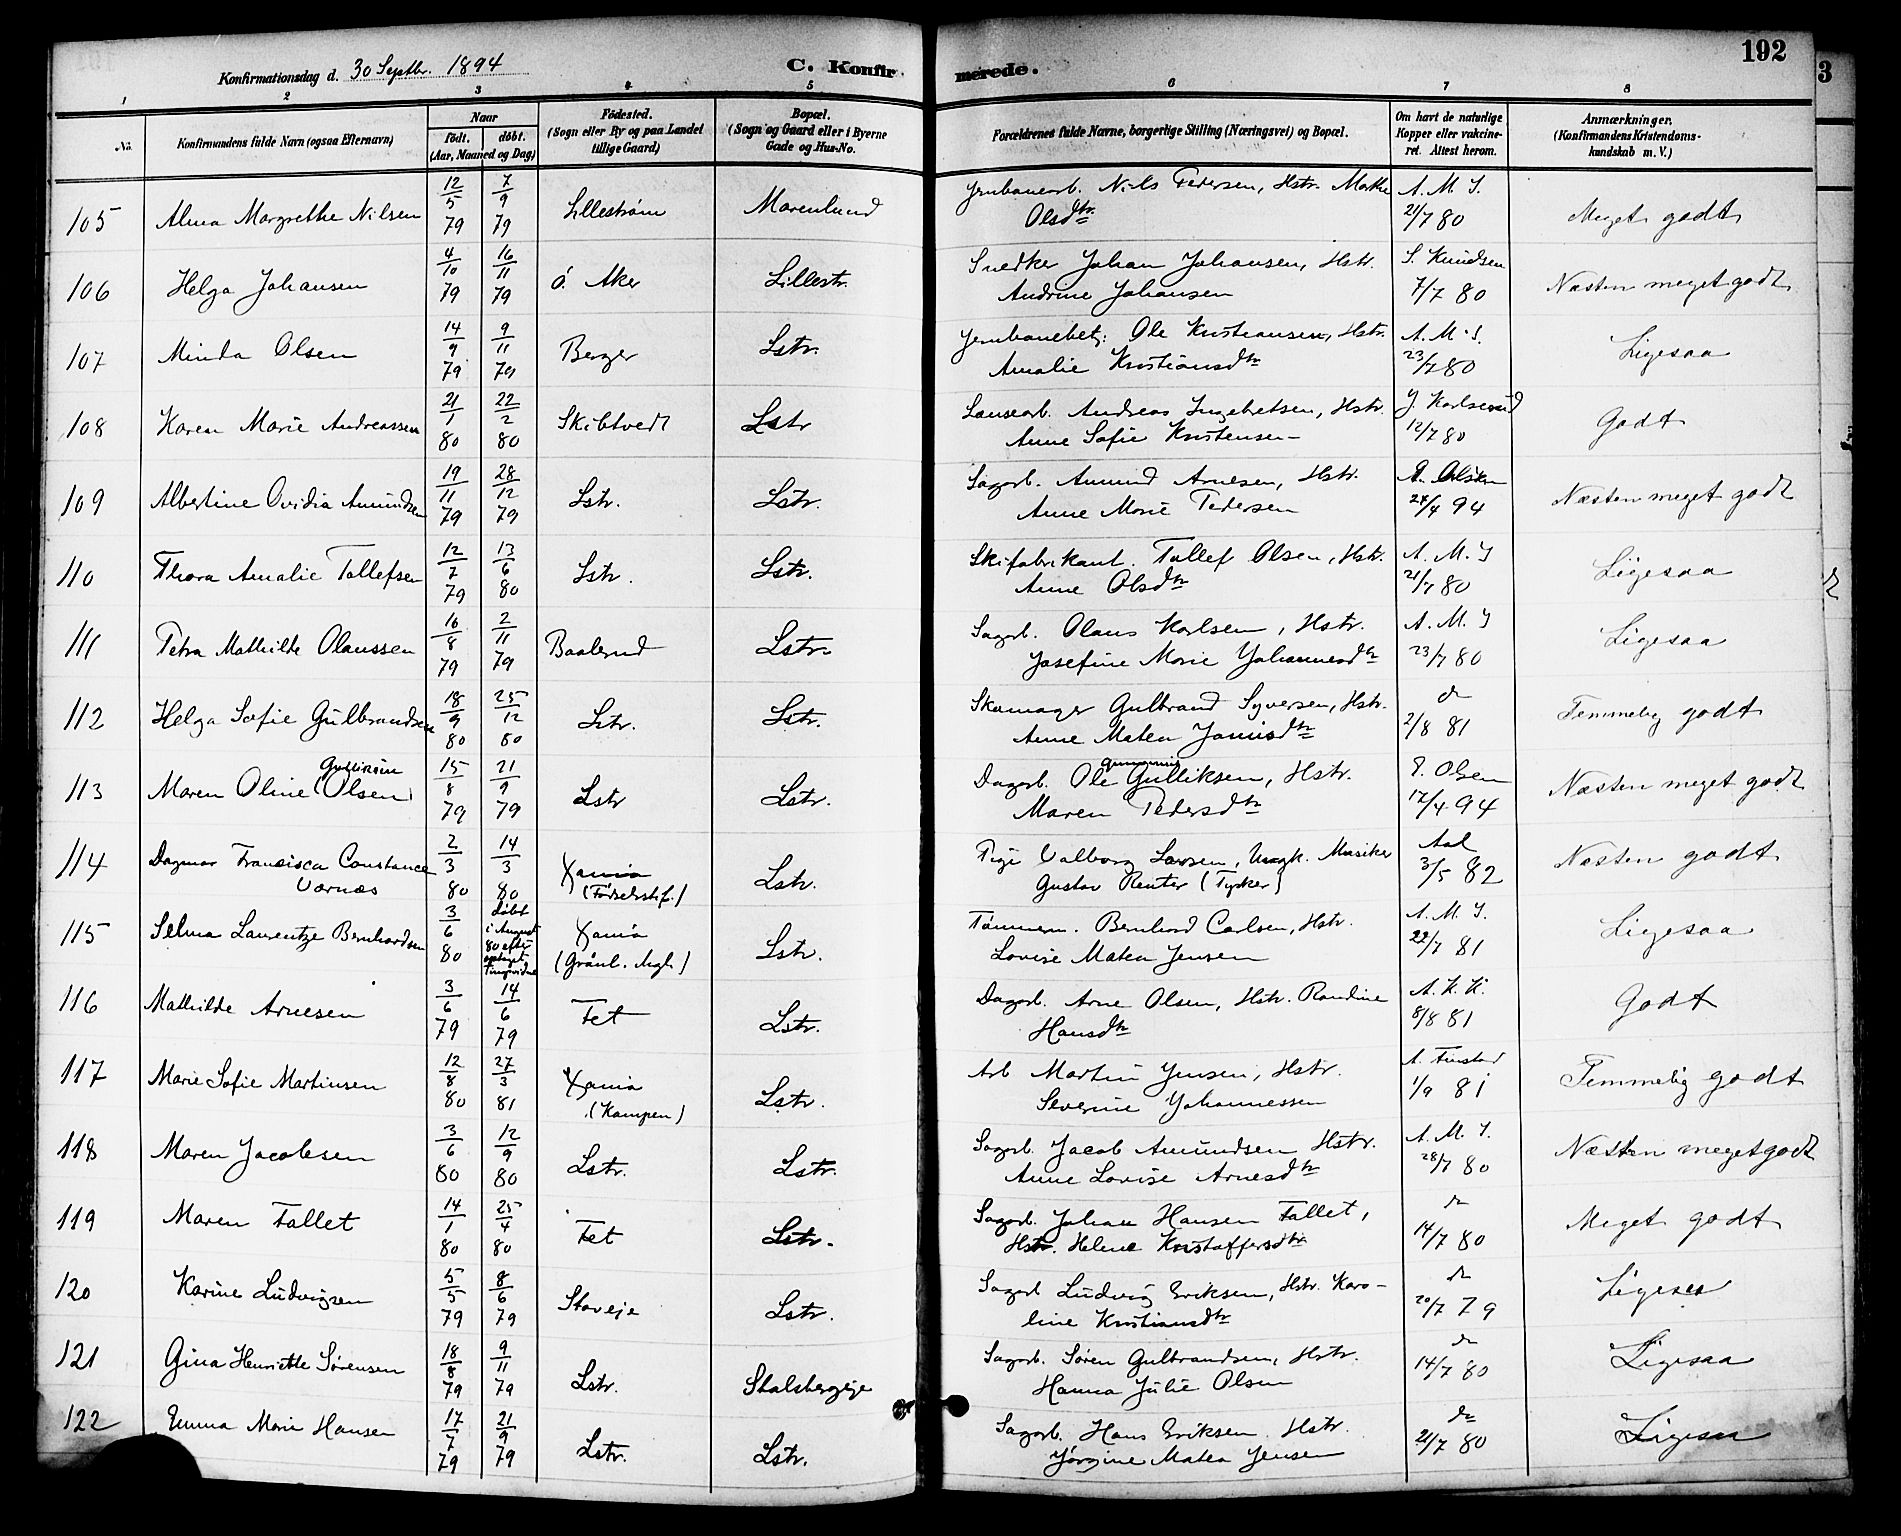 192
3
Konfirmationsdag d. 30 Septbr. 1894
C. Konfirmerede.
1 2 3 4 5 6 7 8
No. Konfirmandens fulde Navn (ogsaa Efternavn) Naar Födt. döbt. (Aar, Maaned og Dag) Födested. (Sogn eller By og paa Landet tillige Gaard) Bopæl. (Sogn og Gaard eller i Byerne Gade og Hus-No. Forældrenes fulde Navne, borgerlige Stilling (Næringsvei) og Bopæl. Om havt de naturlige Kopper eller vakcineret. Attest herom. Anmærkninger. (Konfirmandens Kristendomskundskab m. V.)
105 Alma Margrethe Nilsen 12/5 79 7/9 79 Lillestrøm Marenlund Jernbanearb. Niels Pedersen, Hstr. Marthe Olsdtr A. M. I. 21/7 80 Meget godt
106 Helga Johansen 4/10 79 16/11 79 Ö. Aker Lillestr. Snedker Johan Johansen, Hstr. Andrine Johansen S. Knudsen 7/7 80 Næsten meget godt
107 Minda Olsen 14/9 79 9/11 79 Berger Lstr. Jernbanebetj: Ole Kristiansen, Hstr. Amalie Kristiansdtr A. M. I. 23/7 80 Ligesaa
108 Karen Marie Andreassen 21/1 80 22/2 80 Skibtvedt Lstr Lænsearb. Andreas Ingebretsen, Hstr. Anne Sofie Kristensen J. Karlsrud 12/7 80 Godt
109 Albertine Ovidia Amundsen 19/11 79 28/12 79 Lstr. Lstr. Sagarb. Amund Arnesen, Hstr. Anne Marie Pedersen P. Olsen 24/4 94 Næsten meget godt
110 Thora Amalie Tollefsen 12/7 79 13/6 80 Lstr. Lstr. Skifabrikant. Tollef Olsen, Hstr. Anne Olsdtr A. M. I 21/7 80 Ligesaa
111 Petra Mathilde Olaussen 16/8 79 2/11 79 Baalerud Lstr. Sagarb. Olaus Karlsen, Hstr. Josefine Marie Johannesdtr A. M. I 23/7 80 Ligesaa
112 Helga Sofie Gulbrandsen 18/9 80 25/12 80 Lstr. Lstr. Skomager Gulbrand Syversen, Hstr. Anne Matea Jonisdtr do 2/8 81 Temmelig godt
113 Maren Oline (Olsen) Gulliksen 15/8 79 21/9 79 Lstr Lstr. Dagarb. Ole Gulliksen, Hstr. Maren Pedersdtr P. Olsen 17/4 94 Næsten meget godt
114 Dagmar Francisca Constance Varnæs 2/3 80 14/3 80 Xania (Födselsstif.) Lstr. Pige Valborg Larsen, Ungk. Musiker Gustav Renter (Tysker) Aal 3/5 82 Næsten godt
115 Selma Laurentze Bernhardsen 3/6 80 döbt i August 80 efter optaget Tingsvidne Xania (Grönl. Mgh.) Lstr. Tømmerm. Bernhard Carlsen, Hstr. Lovise Matea Jensen A. M. I. 22/7 81 Ligesaa
116 Mathilde Arnesen 3/6 79 14/6 79 Fet Lstr. Dagarb. Arne Olsen, Hstr. Randine Hansdtr A. K. K. 8/8 81 Godt
117 Marie Sofie Martinsen 12/8 80 27/3 81 Xania (Kampen) Lstr. Arb Martin Jensen, Hstr. Severine Johannessen A. Finstad 1/9 81 Temmelig godt
118 Maren Jacobsen 3/6 80 12/9 80 Lstr. Lstr. Sagarb. Jacob Amundsen Hstr. Anne Lovise Arnesdtr A. M. I. 28/7 80 Næsten meget godt
119 Maren Fallet 14/1 80 25/4 80 Fet Lstr. Sagarb. Johan Hansen Fallet, Hstr. Helene Kristoffersdtr do 14/7 80 Meget godt
120 Karine Ludvigsen 5/5 79 8/6 79 Skoveje Lstr. Sagarb Ludvig Eriksen, Hstr. Karoline Kristiansdtr do 20/7 79 Ligesaa
121 Gina Henriette Sørensen 18/8 79 9/11 79 Lstr. Stalsbergeje Sagarb. Søren Gulbrandsen, Hstr. Hanna Julie Olsen do 14/7 80 Ligesaa
122 Emma Marie Hansen 17/7 79 21/9 79 Lstr. Lstr. Sagarb. Hans Eriksen Hstr. Jørgine Matea Jensen do 21/7 80 Ligesaa